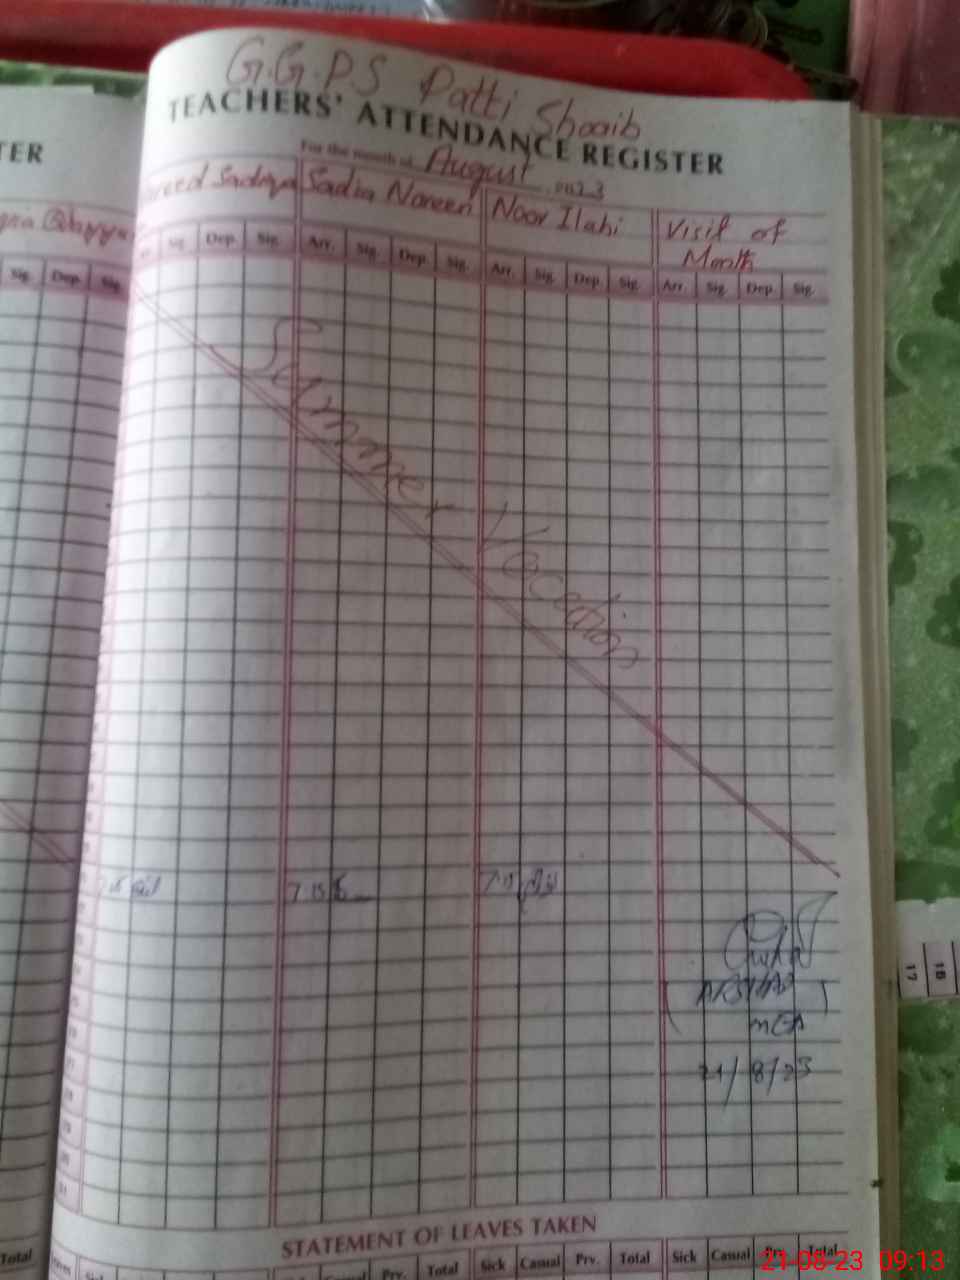 G.G.P.S Patti Shoaib
TEACHERS' ATTENDANCE REGISTER
TER
For the month of August 2023
Sadia Noreen
Noor Ilahi
Visit of
Month
Sig. Dep. Sig.
Sig. Dep. Sig.
Arr. Sig. Dep. Sig.
Arr. Sig. Dep. Sig.
Arr. Sig. Dep. Sig.
Summer Vacation
7.15
7.15
ARSHAD
MEA
21/8/23
16
17
STATEMENT OF LEAVES TAKEN
Total
Sick
Casual Prv. Total
Sick Casual Prv. Total
Sick Casual Prv. Total
21-08-23 09:13